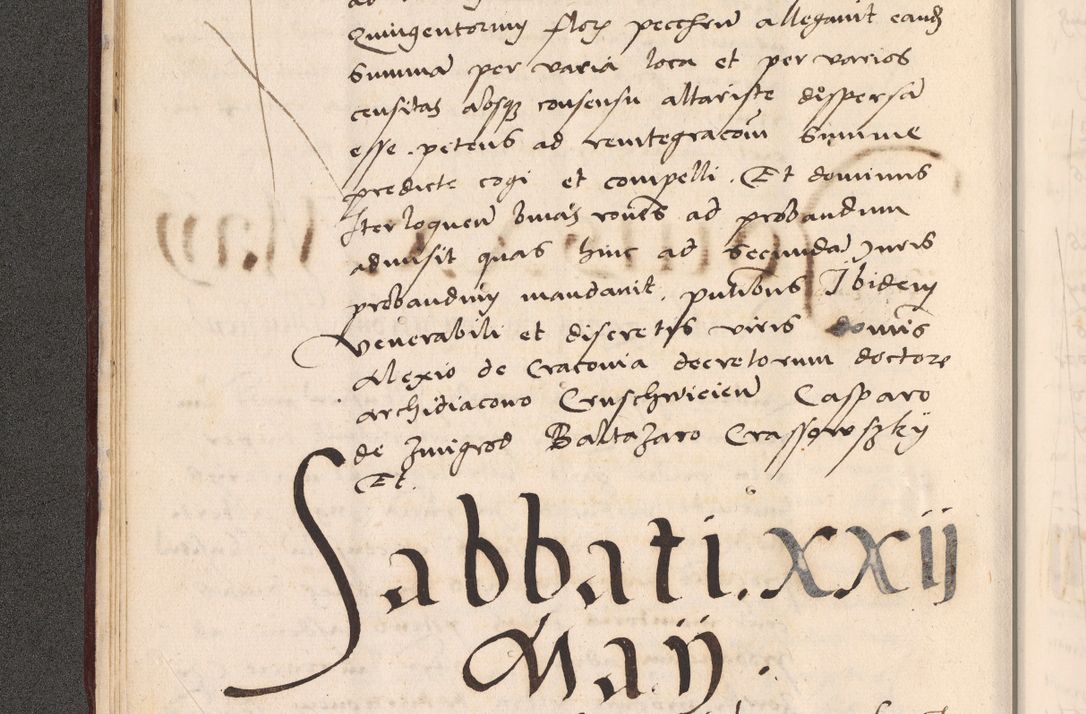 Quingentorum flor pecchun allegavit eandem
Summa per varia loca et per varios
censitas absque consensu altariste dispersa
esse. petens ad reintegracoem Summe
predicte cogi et compelli. Et dominus
Iterloquen binas rones ad probandum
admisit quas hinc ad Secunda Juris
probandum mandavit. putibus Ibidem
venerabili et discretis viris dominis
Alexio de Cracovia decretorum doctore
archidiacono Cruschwicien Casparo
de Zmigrod Baltazaro Crassowszky
Et.
Sabbati. xxij
Maij.